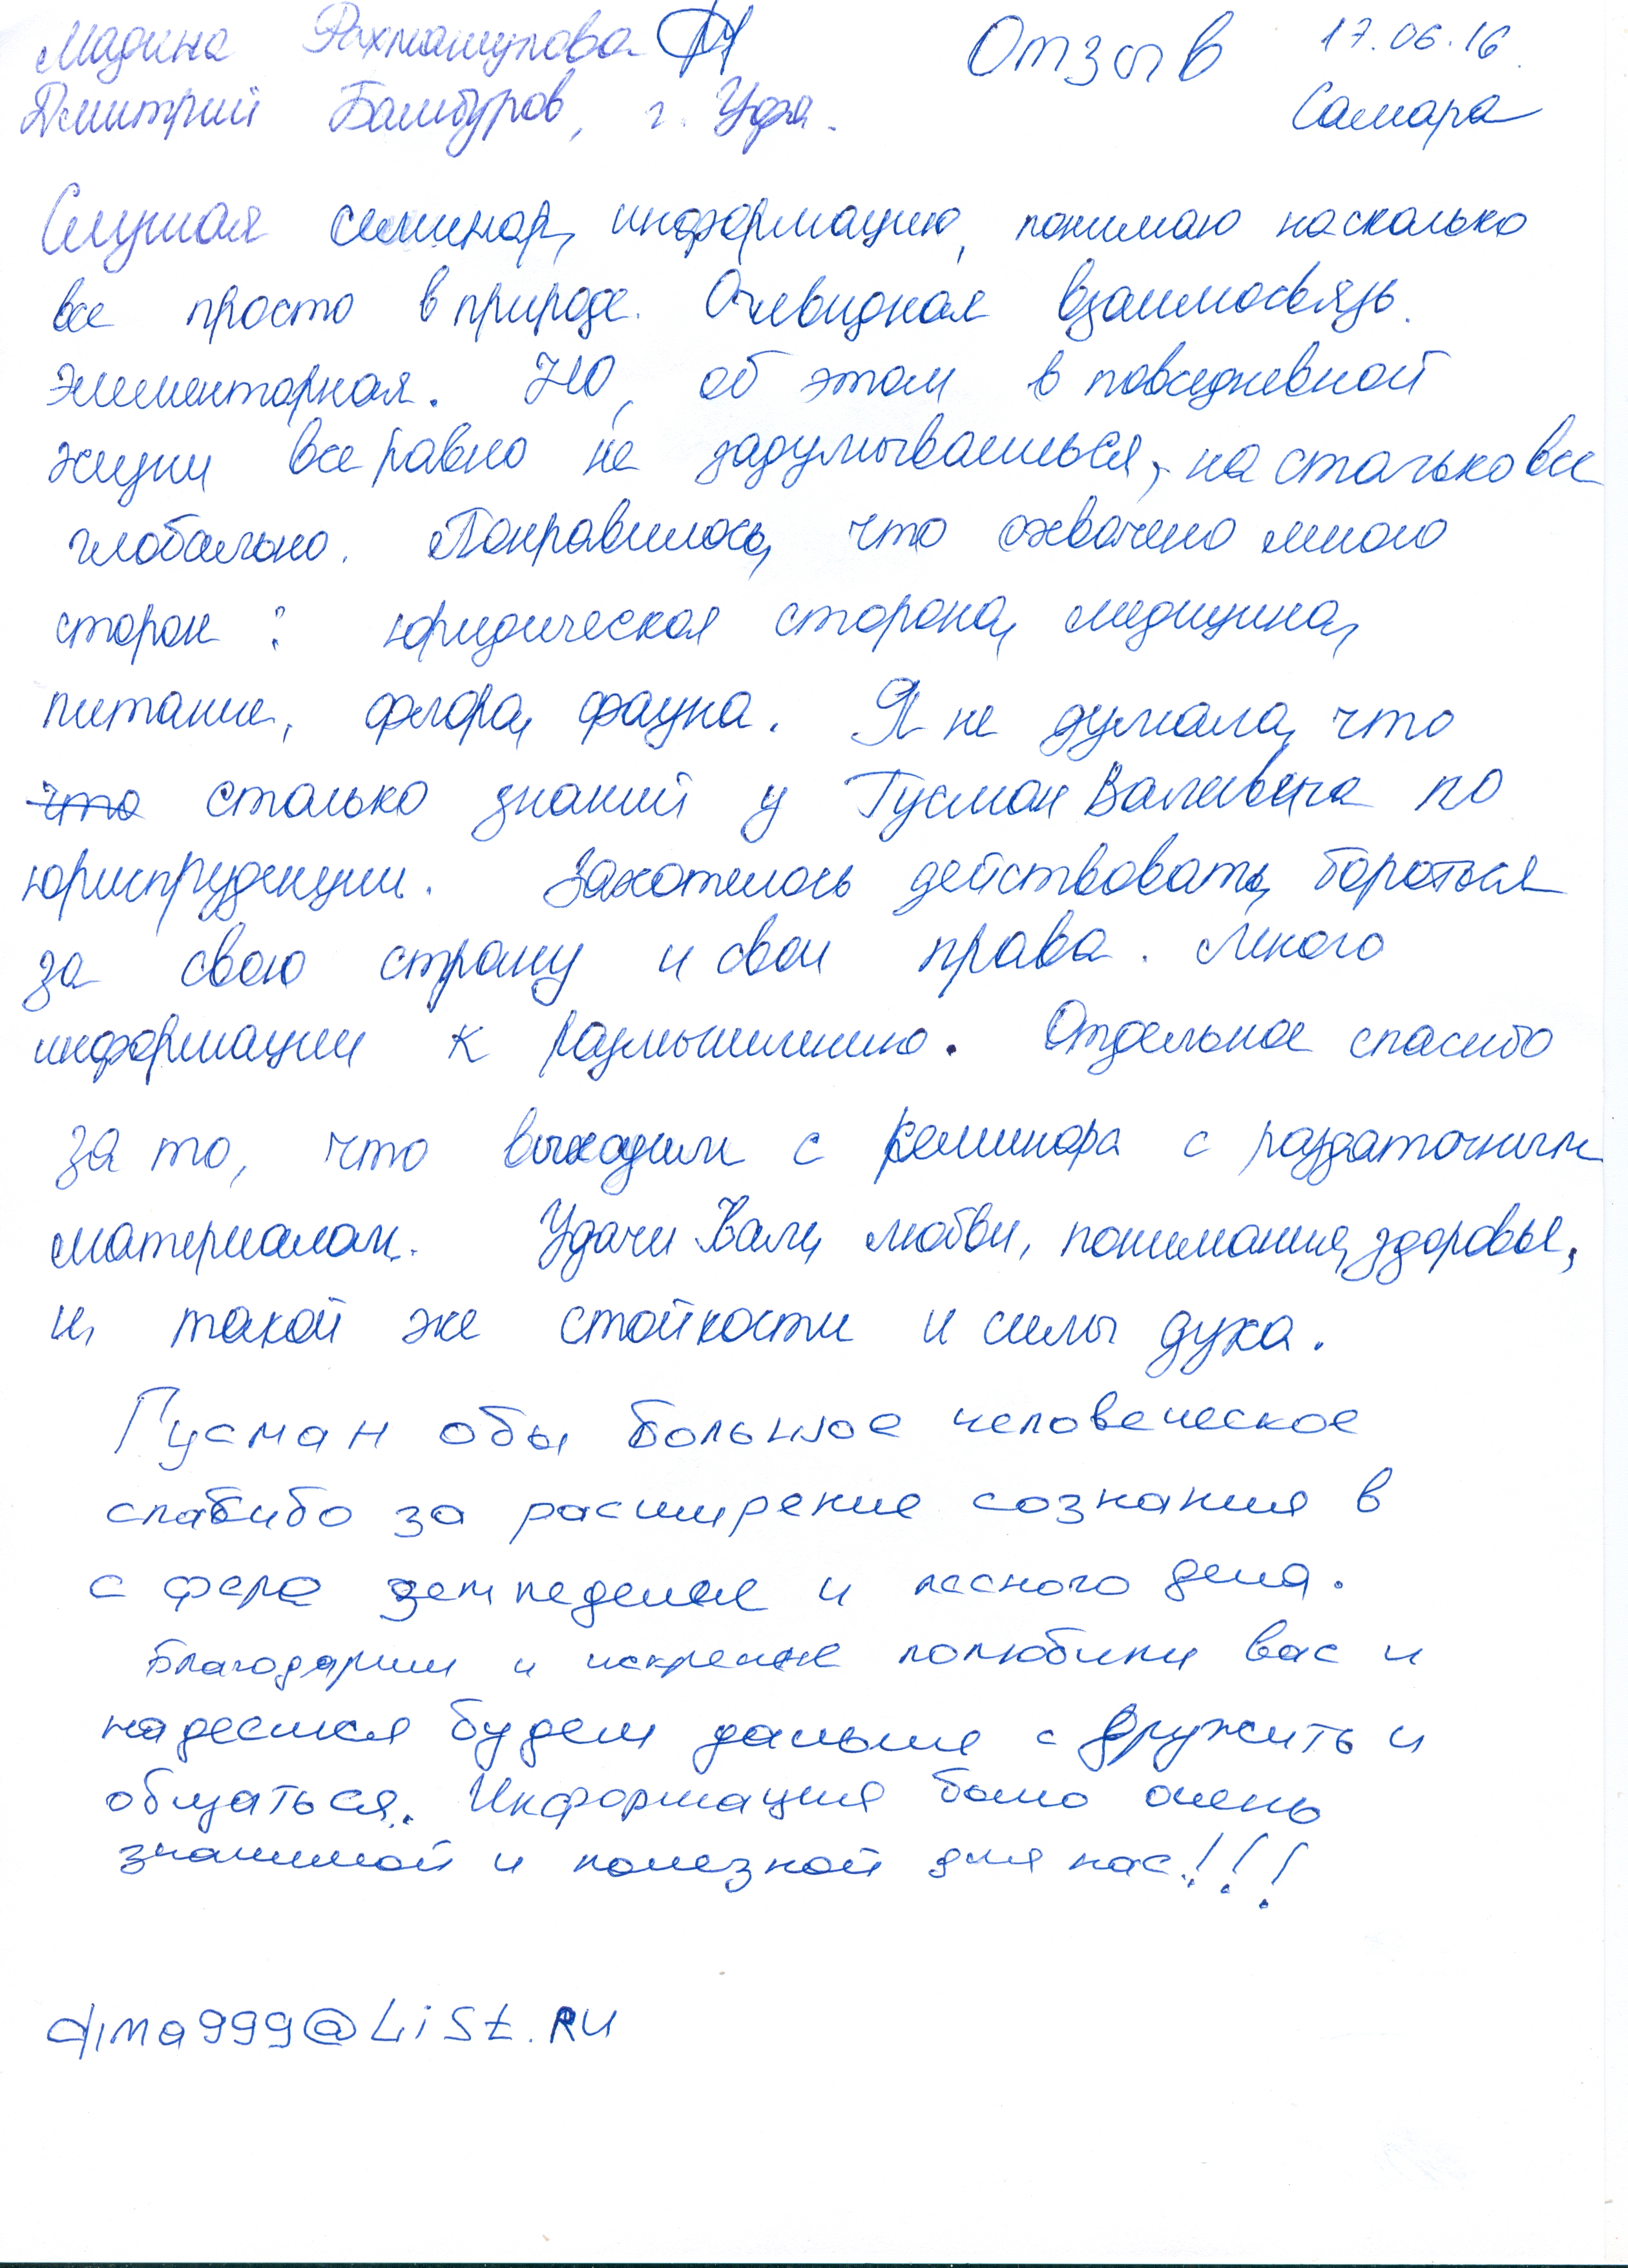 Мадина Рахмашулова
Отзыв 17.06.16.
Дмитрий Бамбуров, г. Уфа.
Самара
Слушая семинар, информацию, понимаю насколько
все просто в природе. Очевидная взаимосвязь.
Элементарная. НО, об этом в повседневной
жизни все равно не задумываешься, на столько все
глобально. Понравилось, что охвачено много
сторон : юридическая сторона, медицина,
питание, флора, фауна. Я не думала, что
что столько знаний у Гусман Валеевича по
юриспруденции. Захотелось действовать, бороться
за свою страну и свои права. Много
информации к размышлению. Отдельное спасибо
за то, что выходим с семинара с раздаточным
материалом. Удачи Вам, любви, понимания, здоровье,
и, такой же стойкости и силы духа.
Гусман обы Большое человеческое
спасибо за расширение сознания в
сфере земледелие и лесного дела.
Благодарим и искренне полюбили вас и
надеемся будем дальше с дружить и
общаться. Информация было очень
значимой и полезной для нас!!!
dima999@List.RU